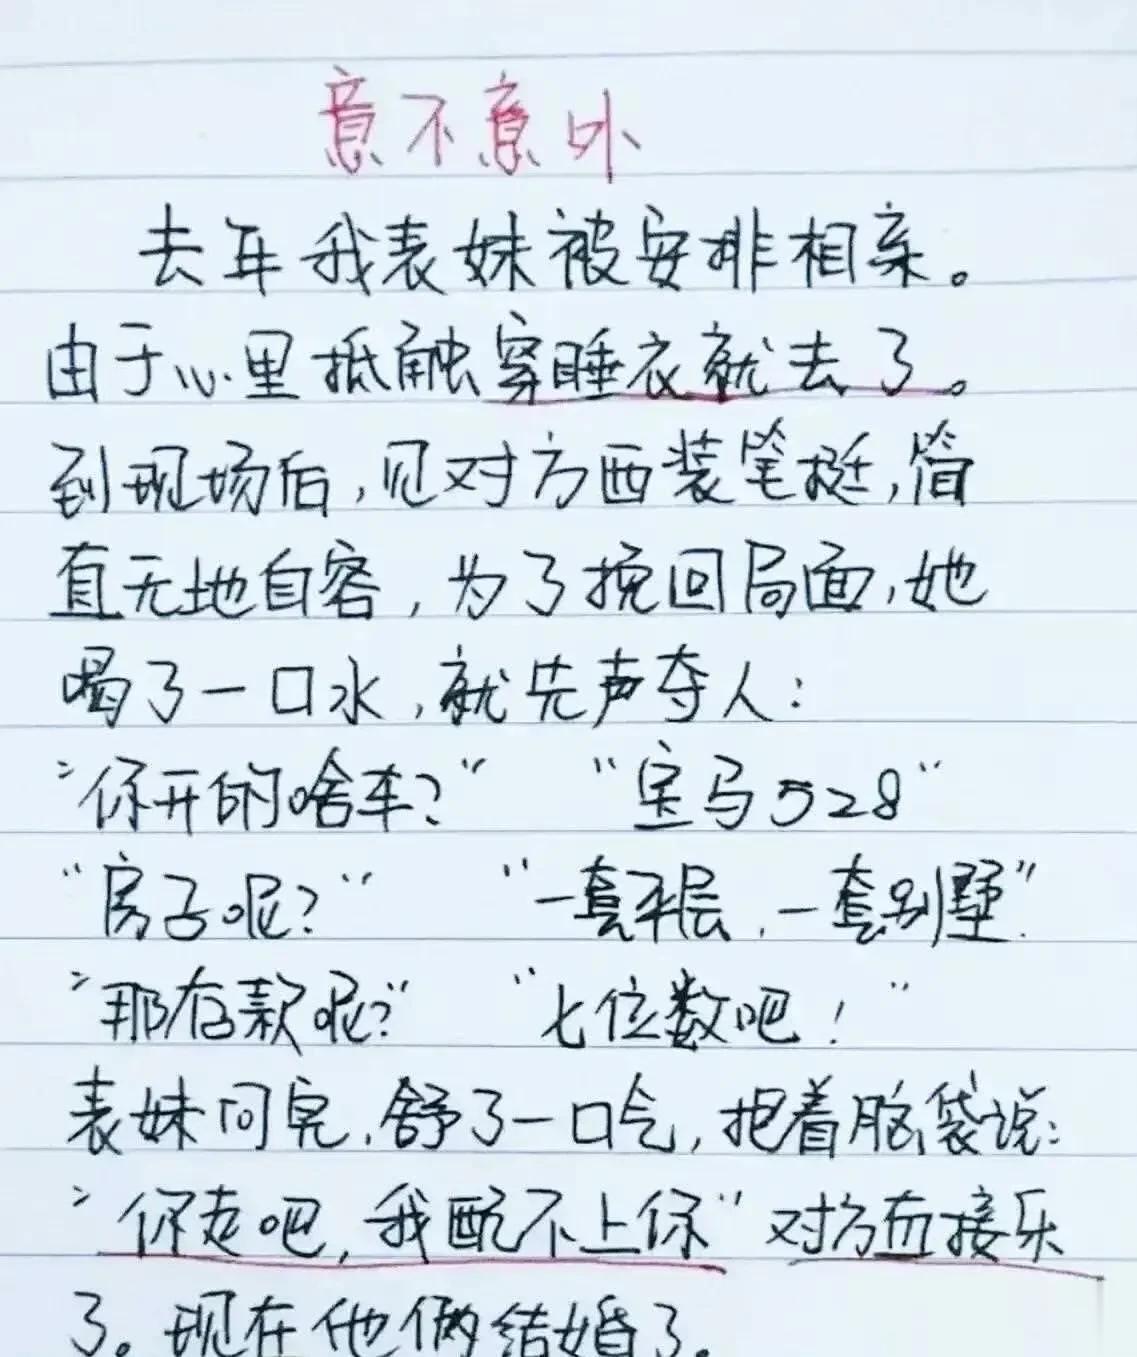 意不意外
去年我表妹被安排相亲。
由于心里抵触穿睡衣就去了。
到现场后,见对方西装笔挺,简
直无地自容,为了挽回局面,她
喝了一口水,就先声夺人:
“你开的啥车?” “宝马528”
“房子呢?” “一套平层,一套别墅”
“那存款呢?” “七位数吧!”
表妹问完,舒了一口气,抱着脑袋说:
“你走吧,我配不上你”对方直接乐
了。现在他俩结婚了。